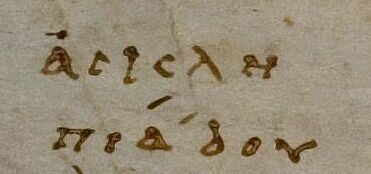 ἀσκλη
πιάδου